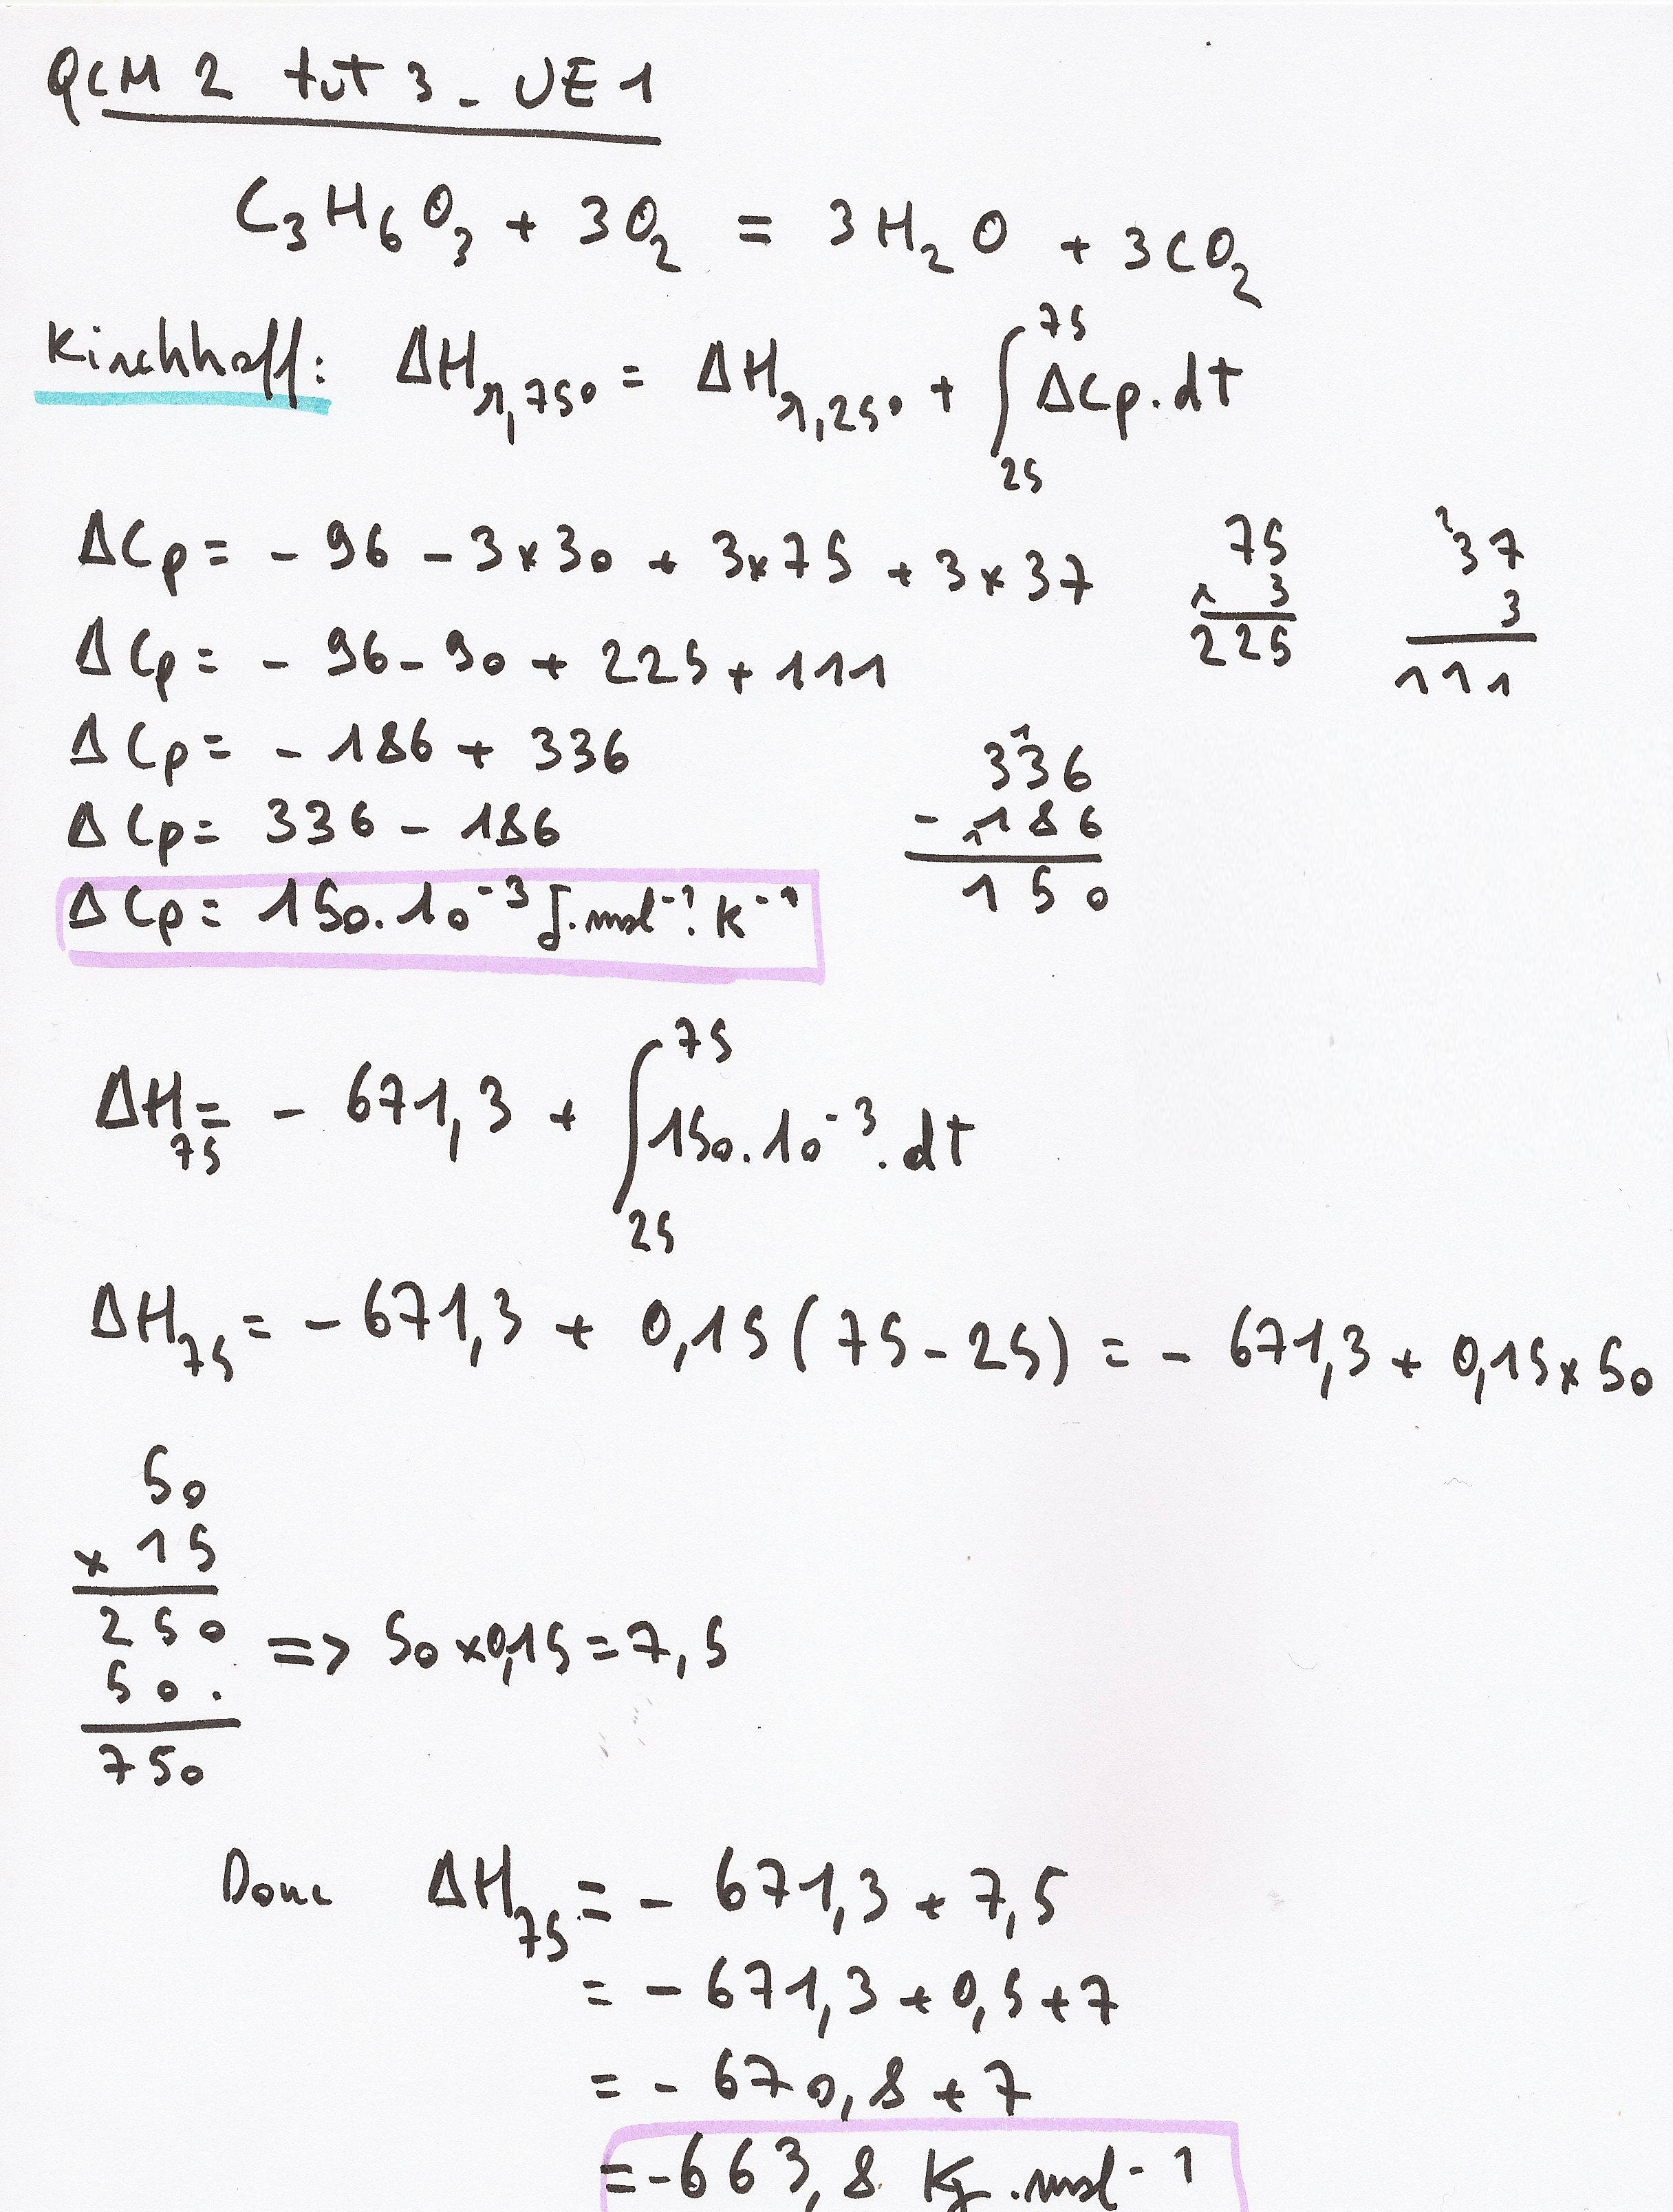 QCM 2 tut 3 - UE 1
C₃H₆O₃ + 3O₂ = 3H₂O + 3CO₂
Kirchhoff: ΔHr,75° = ΔHr,25° + ∫₂₅⁷⁵ ΔCp.dt
ΔCp = - 96 - 3x30 + 3x75 + 3x37
ΔCp = - 96 - 90 + 225 + 111
ΔCp = - 186 + 336
ΔCp = 336 - 186
ΔCp = 150.10⁻³ J.mol⁻¹.K⁻¹
75
x 3
225
²37
3
111
3¹36
- ₁186
150
ΔH₇₅ = - 671,3 + ∫₂₅⁷⁵ 150.10⁻³.dt
ΔH₇₅ = - 671,3 + 0,15 (75 - 25) = - 671,3 + 0,15 x 50
50
x 15
250
50.
750
=> 50 x 0,15 = 7,5
Donc ΔH₇₅ = - 671,3 + 7,5
= - 671,3 + 0,5 + 7
= - 670,8 + 7
= -663,8 KJ.mol⁻¹